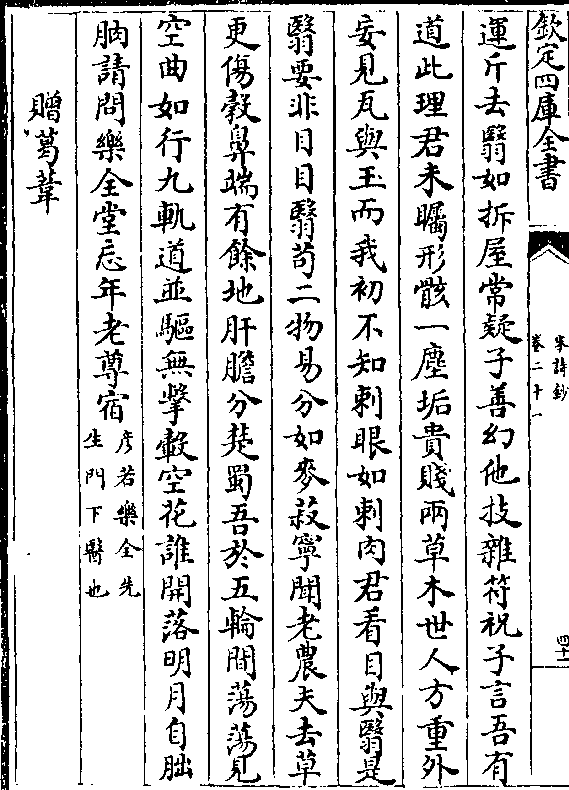 欽定四庫全書
宋詩鈔
卷二十一
四十二
運斤去翳如拆屋常疑子善幻他技雜符祝子言吾有
道此理君未矚形骸一塵垢貴賤兩草木世人方重外
妄見瓦與玉而我初不知刺眼如刺肉君看目與翳是
翳要非目目翳苟二物易分如麥菽寧聞老農夫去草
更傷穀鼻端有餘地肝膽分楚蜀吾於五輪間蕩蕩見
空曲如行九軌道並驅無擊轂空花誰開落明月自朏
朒請問樂全堂忘年老尊宿彥若樂全先
生門下醫也
贈葛葦